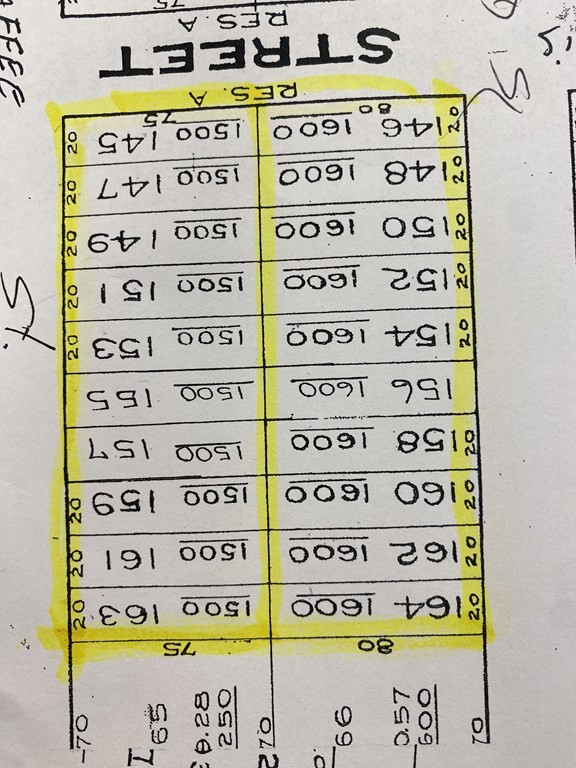 70 600 0.57 66 250 0.28 65 70
80 75
20 164 1600 1500 163 20
20 162 1600 1500 161 20
20 160 1600 1500 159 20
20 158 1600 1500 157
156 1600 1500 155
20 154 1600 1500 153 20
20 152 1600 1500 151 20
20 150 1600 1500 149 20
20 148 1600 1500 147 20
20 146 80 1600 1500 75 145 20
RES. A
STREET
RES. A
75